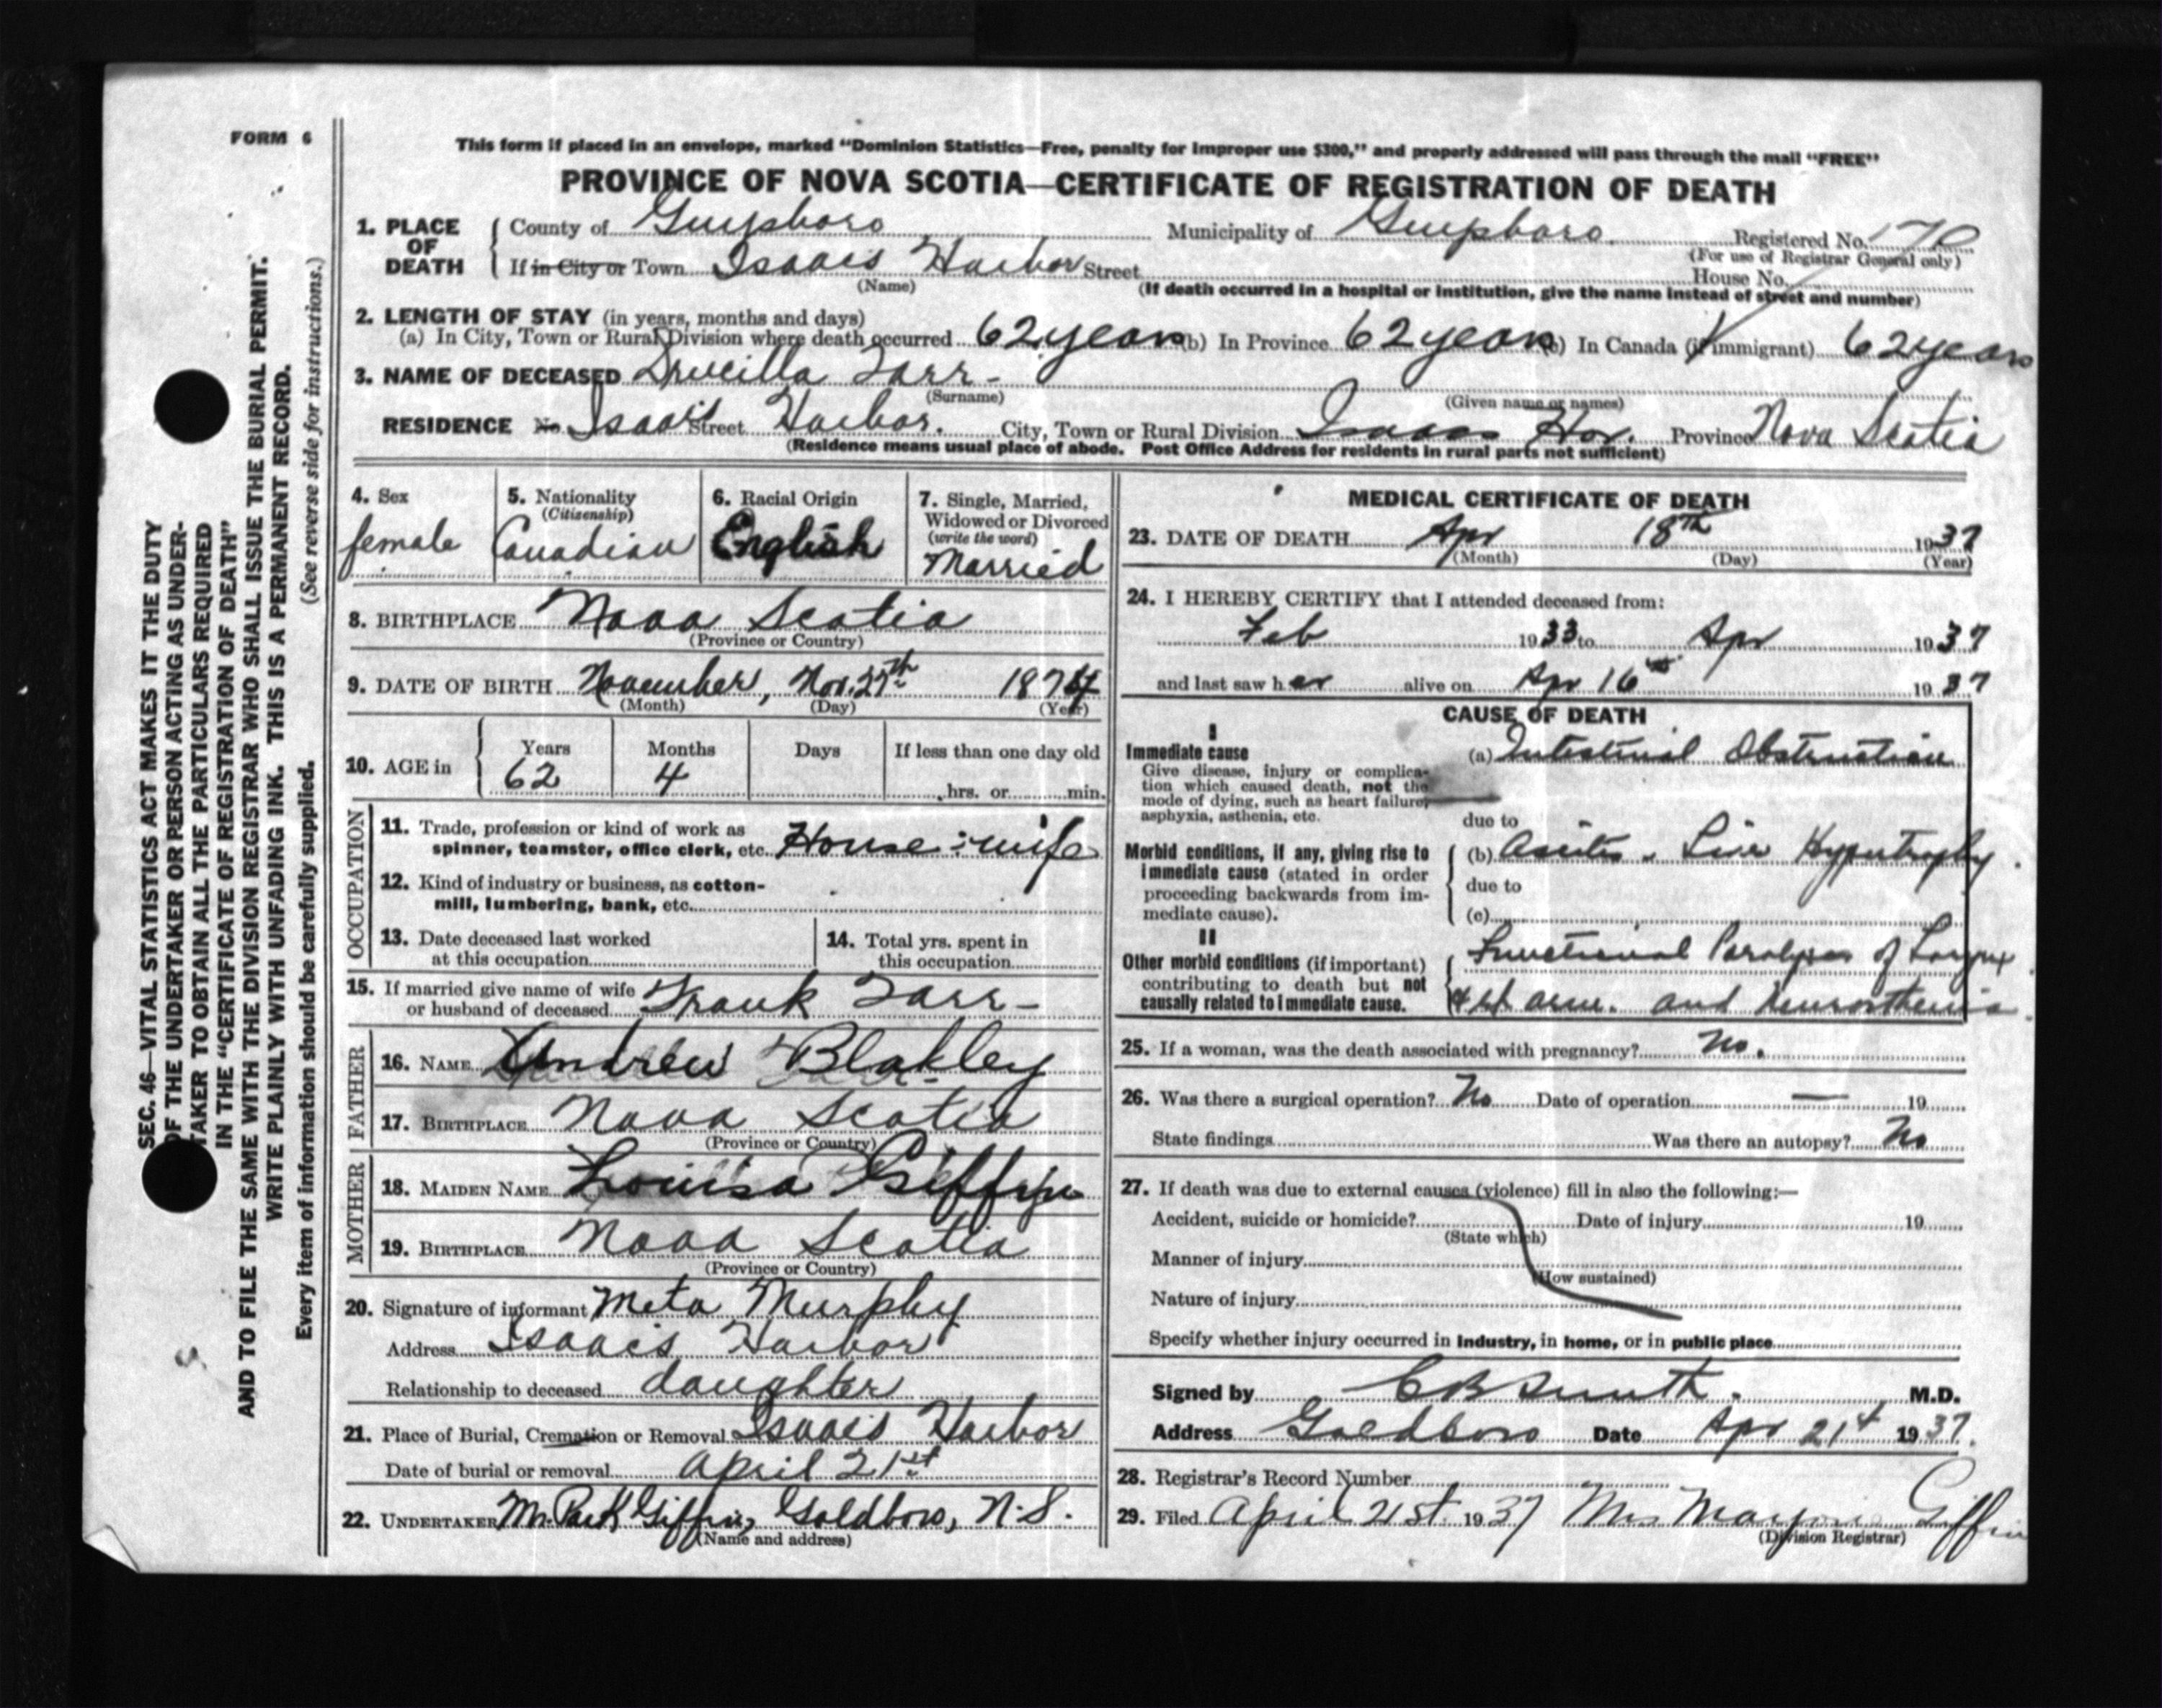 FORM 6
This form if placed in an envelope, marked "Dominion Statistics—Free, penalty for improper use $300," and properly addressed will pass through the mail "FREE"
PROVINCE OF NOVA SCOTIA—CERTIFICATE OF REGISTRATION OF DEATH
1. PLACE OF DEATH County of Guysboro Municipality of Guysboro Registered No. 170
(For use of Registrar General only)
If in City or Town Isaacs Harbor Street House No.
(Name)
(If death occurred in a hospital or institution, give the name instead of street and number)
2. LENGTH OF STAY (in years, months and days)
(a) In City, Town or Rural Division where death occurred 62 years (b) In Province 62 years (c) In Canada (if immigrant) 62 years
3. NAME OF DECEASED Drucilla Tarr-
(Surname) (Given name or names)
RESIDENCE No. Isaac's Street Harbor. City, Town or Rural Division Isaacs Hbr. Province Nova Scotia
(Residence means usual place of abode. Post Office Address for residents in rural parts not sufficient)
4. Sex female
5. Nationality (Citizenship) Canadian
6. Racial Origin English
7. Single, Married, Widowed or Divorced (write the word) Married
8. BIRTHPLACE Nova Scotia
(Province or Country)
9. DATE OF BIRTH November, Nov. 27th 1874
(Month) (Day) (Year)
10. AGE in Years 62 Months 4 Days If less than one day old hrs. or min.
OCCUPATION
11. Trade, profession or kind of work as spinner, teamster, office clerk, etc. House-wife
12. Kind of industry or business, as cotton-mill, lumbering, bank, etc.
13. Date deceased last worked at this occupation
14. Total yrs. spent in this occupation
15. If married give name of wife or husband of deceased Frank Tarr-
FATHER
16. NAME Andrew Blakley
17. BIRTHPLACE Nova Scotia
(Province or Country)
MOTHER
18. MAIDEN NAME Louisa Giffin
19. BIRTHPLACE Nova Scotia
(Province or Country)
20. Signature of informant Meta Murphy
Address Isaacs Harbor
Relationship to deceased daughter
21. Place of Burial, Cremation or Removal Isaacs Harbor
Date of burial or removal April 21st
22. UNDERTAKER Giffin, Goldboro, N.S.
(Name and address)
MEDICAL CERTIFICATE OF DEATH
23. DATE OF DEATH Apr 18th 1937
(Month) (Day) (Year)
24. I HEREBY CERTIFY that I attended deceased from:
Feb 1933 to Apr 1937
and last saw her alive on Apr 16th 1937
CAUSE OF DEATH
I
Immediate cause (a) Intestinal Obstruction
Give disease, injury or complication which caused death, not the mode of dying, such as heart failure, asphyxia, asthenia, etc.
due to
Morbid conditions, if any, giving rise to immediate cause (stated in order proceeding backwards from immediate cause).
(b) Ascites. Liver Hypertrophy.
due to
(c)
II
Other morbid conditions (if important) contributing to death but not causally related to immediate cause.
Functional Paralysis of Larynx
& Lft arm. and Neurosthenia.
25. If a woman, was the death associated with pregnancy? No.
26. Was there a surgical operation? No Date of operation — 19
State findings Was there an autopsy? No
27. If death was due to external causes (violence) fill in also the following:—
Accident, suicide or homicide? Date of injury 19
(State which)
Manner of injury
(How sustained)
Nature of injury
Specify whether injury occurred in industry, in home, or in public place
Signed by C B Smith. M.D.
Address Goldboro Date Apr 21st 1937.
28. Registrar's Record Number
29. Filed April 21st 1937 Mrs Giffin
(Division Registrar)
SEC. 46—VITAL STATISTICS ACT MAKES IT THE DUTY
OF THE UNDERTAKER OR PERSON ACTING AS UNDER-
TAKER TO OBTAIN ALL THE PARTICULARS REQUIRED
IN THE "CERTIFICATE OF REGISTRATION OF DEATH"
AND TO FILE THE SAME WITH THE DIVISION REGISTRAR WHO SHALL ISSUE THE BURIAL PERMIT.
WRITE PLAINLY WITH UNFADING INK. THIS IS A PERMANENT RECORD.
Every item of information should be carefully supplied. (See reverse side for instructions.)